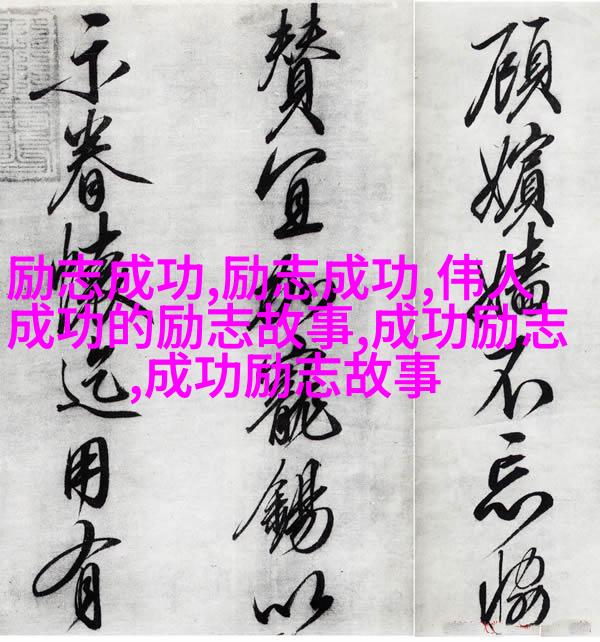 顧嬪嬙不忘協
贊宜寵錫以
示眷懷迄用有
励志成功,励志成功,伟人
成功的励志故事,成功励志
,成功励志故事